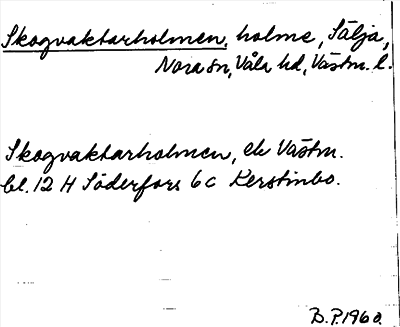 Skogvaktarholmen, holme, Sälja,
Nora sn, Våla hd, Västm. l.
Skogvaktarholmen, ek Västm.
bl. 12 H Söderfors 6 c Kerstinbo.
B.P. 1960.